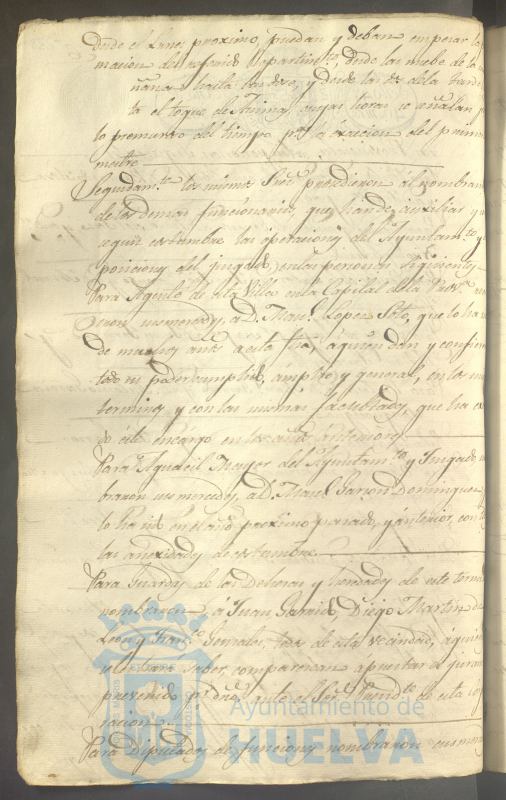 desde el Lunes proximo, puedan y deban empezar la
macion del referido Repartim.to, desde las nueve de la
ñana hasta las doce, y desde las tres de la tarde
ta el toque de Animas, cuyas horas se señalan p
lo premuroso del tiempo p.a la exaccion del primer
mestre
Seguidam.te los mismos Sres procedieron al nombram
de los demas funcionarios, que han de auxiliar y
seguir costumbre las operaciones del Ayuntam.to y
posiciones del juzgado, en las personas siguientes
Para Agente de esta Villa en la Capital de la Prov.a
braron sus mercedes, a D. Man.l Lopez Soto, que lo ha
de muchos años a esta fha, á quien dan y confieren
todo su poder cumplido, ámplio y general, en los mis
terminos y con las mismas facultades que ha ex
do este encargo en los años anteriores
Para Alguacil Mayor del Ayuntam.to y Juzgado
braron sus mercedes, a D. Man.l Garzon Dominguez
lo ha sido en el año proximo pasado, y anterior, con to
las anexidades de costumbre
Para Guardas de las Dehesas y heredades de este termi
nombraron á Juan Garrido, Diego Martin de
Leon y Fran.co Gonzalez, todos de esta vecindad, á quie
y se hará saber, comparezcan a prestar el juram
prevenido p.r dro, ante el Sor. Presid.te de esta cor
racion
Para Diputados de funciones nombraron sus merc
Ayuntamiento de
HUELVA